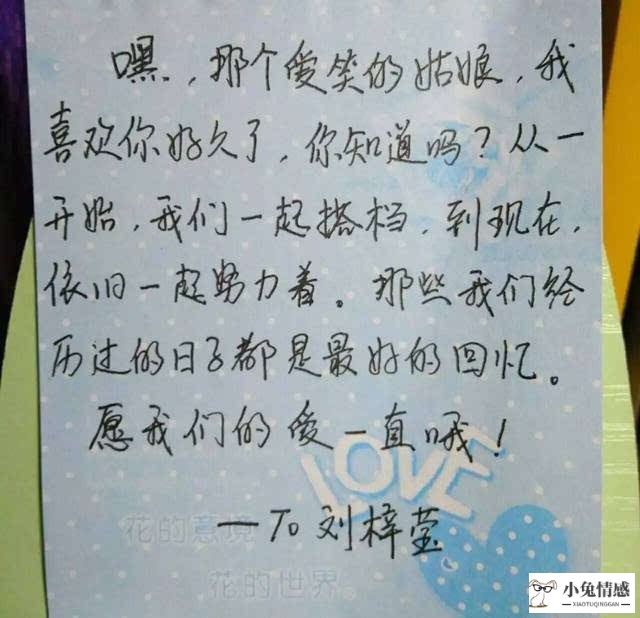 嘿，那个爱笑的姑娘，我
喜欢你好久了，你知道吗？从一
开始，我们一起搭档，到现在，
依旧一起努力着。那些我们经
历过的日子都是最好的回忆。
愿我们的爱一直哦！
LOVE
—To 刘梓莹
花的意境
花的世界
小兔情感
XIAOTUQINGGAN